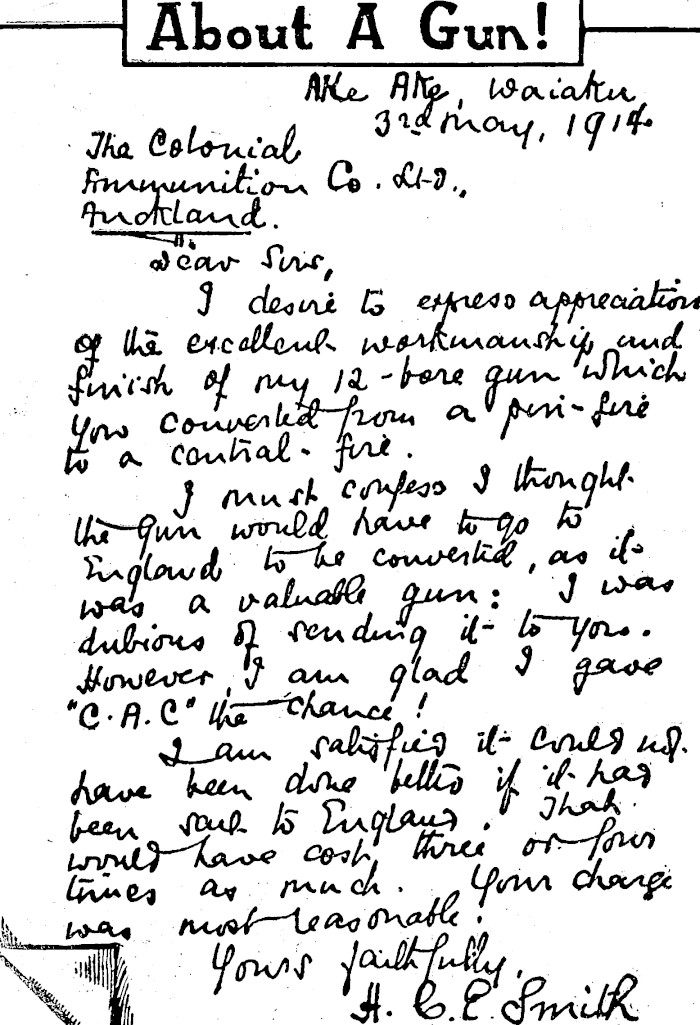 About A Gun!
Ake Ake, Waiaku
3rd May, 1914.
The Colonial
Ammunition Co. Ltd.,
Auckland.
Dear Sirs,
I desire to express appreciation
of the excellent workmanship and
finish of my 12-bore gun which
you converted from a pin-fire
to a central-fire.
I must confess I thought
the gun would have to go to
England to be converted, as it
was a valuable gun: I was
dubious of sending it to you.
However, I am glad I gave
"C.A.C" the chance!
I am satisfied it could not
have been done better if it had
been sent to England. That
would have cost three or four
times as much. Your charge
was most reasonable!
Yours faithfully,
H. C. E. Smith